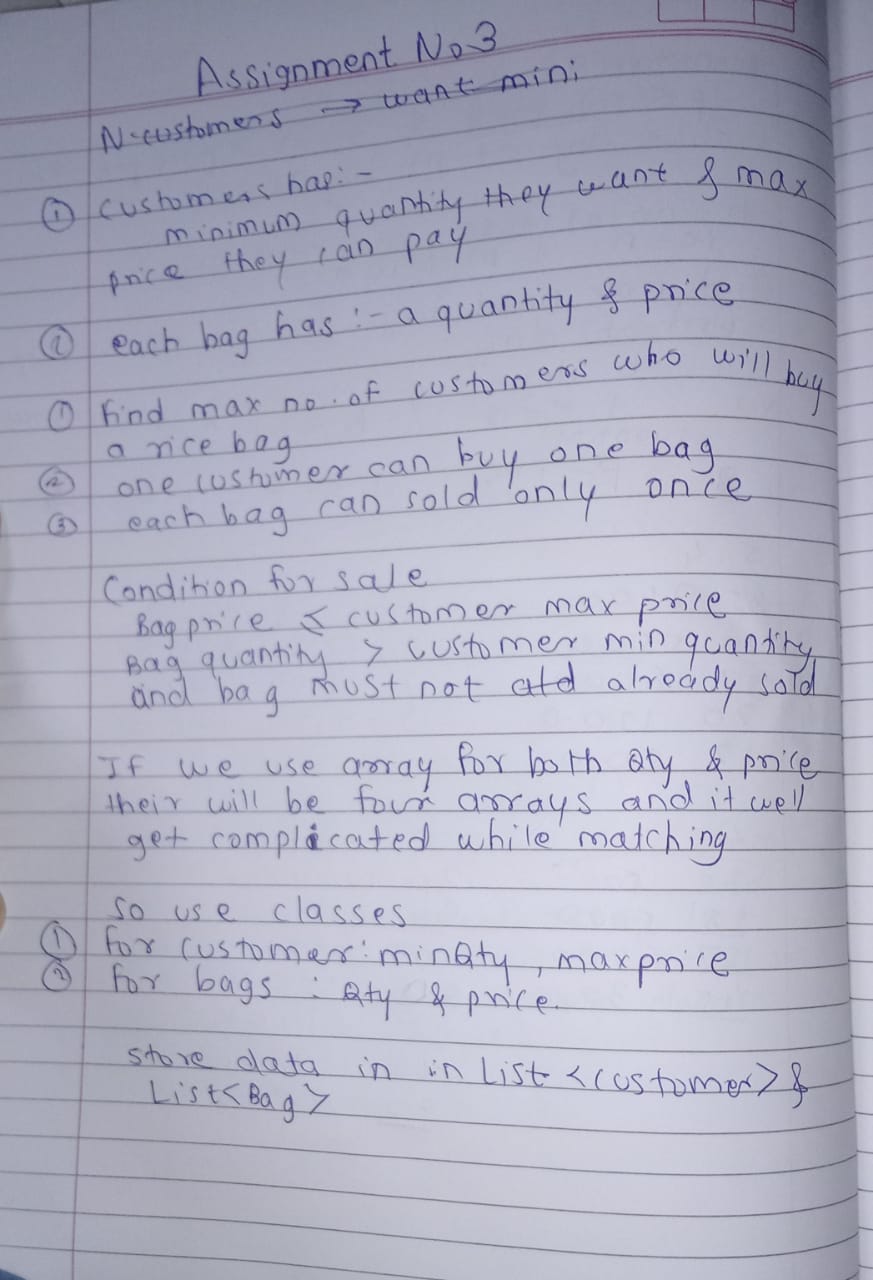 Assignment No 3
N-customers → want mini
① customers has:-
minimum quantity they want & max
price they can pay
② each bag has :- a quantity & price
① find max no. of customers who will buy
a rice bag
② one customer can buy one bag
③ each bag can sold only once
Condition for sale
Bag price ≤ customer max price
Bag quantity > customer min quantity
and bag must not already sold
If we use array for both Qty & price
their will be four arrays and it well
get complicated while matching
so use classes
① for customer: minQty, maxprice
② for bags : Qty & price.
store data in in List <Customer> &
List<Bag>